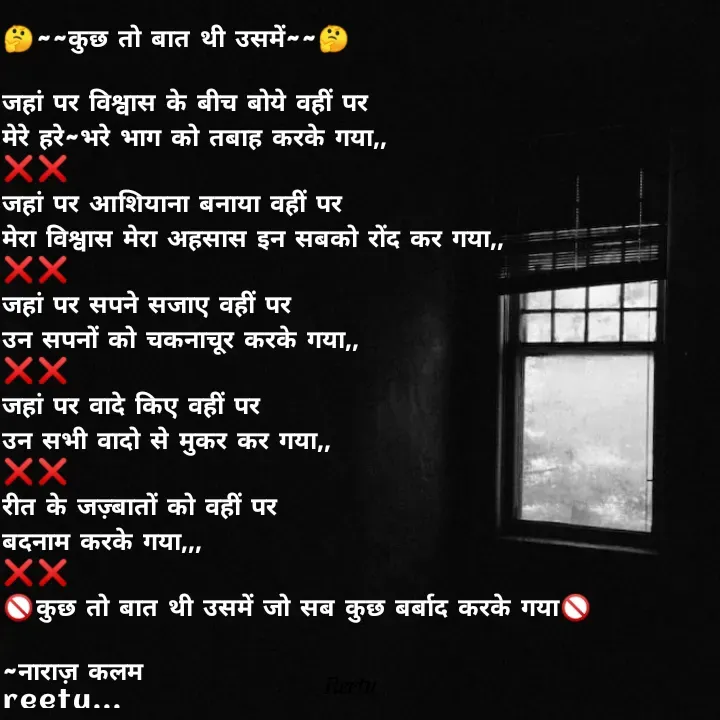 🤔~~कुछ तो बात थी उसमें~~🤔
जहां पर विश्वास के बीच बोये वहीं पर
मेरे हरे~भरे भाग को तबाह करके गया,,
❌❌
जहां पर आशियाना बनाया वहीं पर
मेरा विश्वास मेरा अहसास इन सबको रोंद कर गया,,
❌❌
जहां पर सपने सजाए वहीं पर
उन सपनों को चकनाचूर करके गया,,
❌❌
जहां पर वादे किए वहीं पर
उन सभी वादो से मुकर कर गया,,
❌❌
रीत के जज़्बातों को वहीं पर
बदनाम करके गया,,,
❌❌
🚫कुछ तो बात थी उसमें जो सब कुछ बर्बाद करके गया🚫
~नाराज़ कलम
reetu...